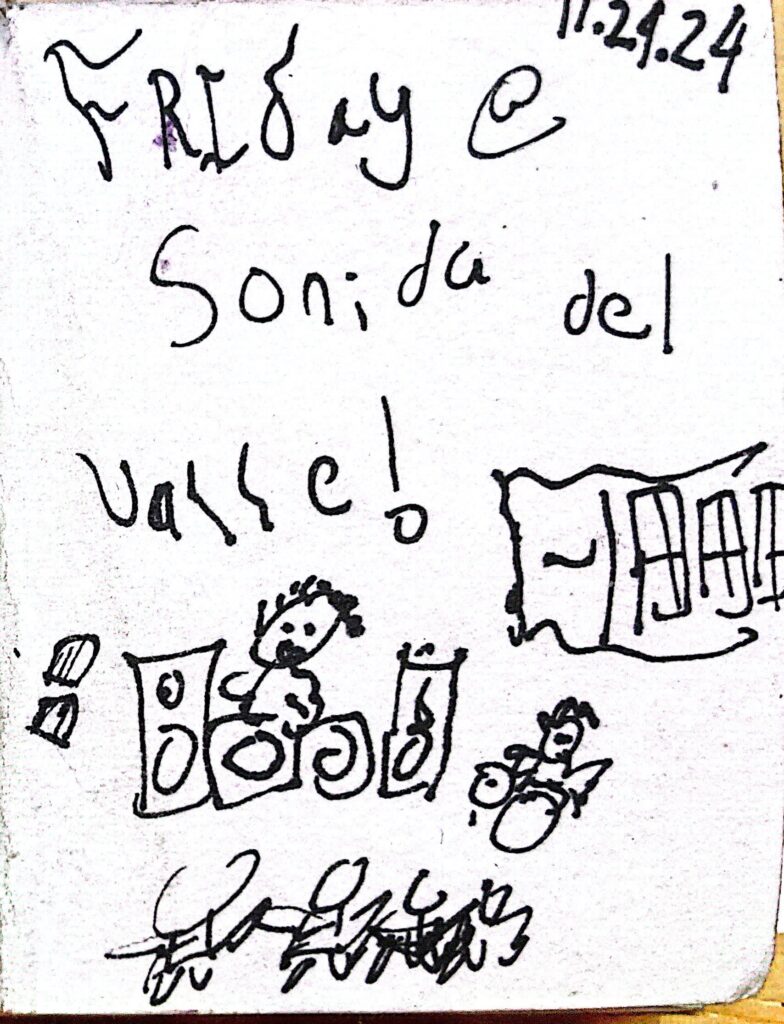 11.29.24
FRIday @
Sonida del
Valle!